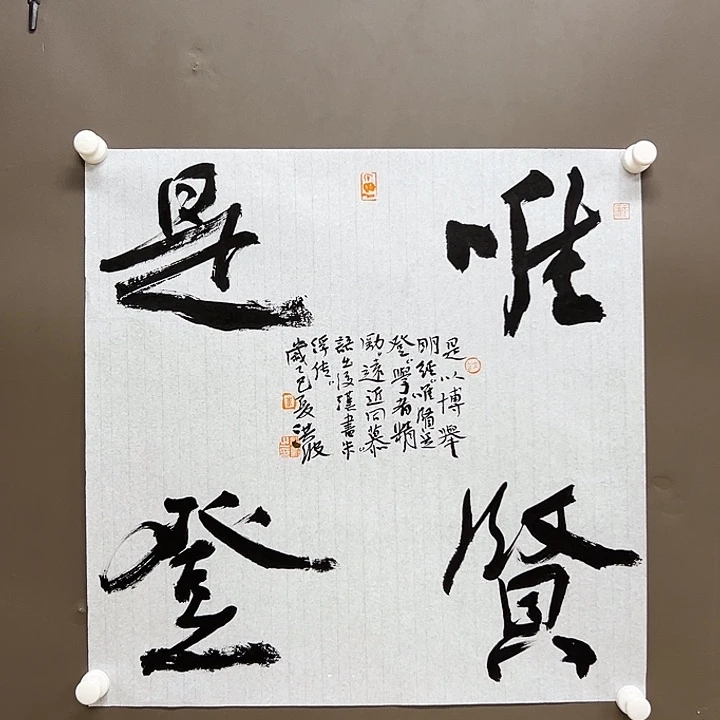 唯賢
是登
是以博舉
明經唯賢是
登學者精
勵遠近同慕
語出後漢書朱
浮傳
歲乙巳夏洪波